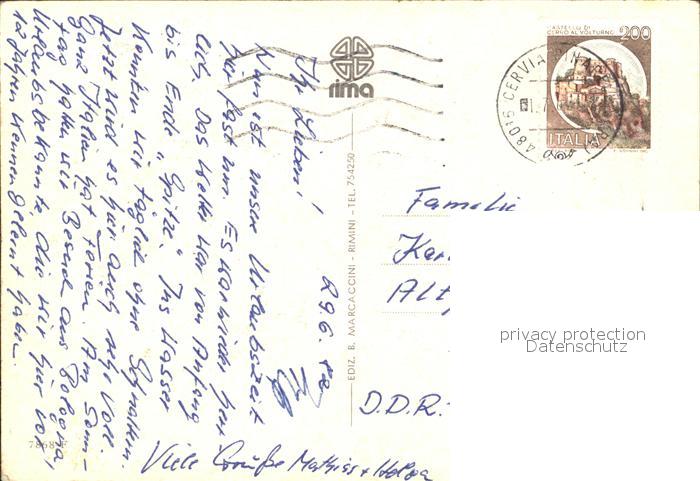 29.6.82
Ihr Lieben!
Nun ist unser Urlaubszeit
hier fast um. Es war wieder herr-
lich. Das Wetter war von Anfang
bis Ende "Spitze". Ins Wasser
konnten wir täglich ohne
Jetzt wird es hier auch sehr voll.
Ganz Italien hat Ferien. Am Sonn-
tag hatten wir Besuch aus Bologna,
Urlaubsbekannte, die wir hier vor
12 Jahren kennengelernt haben.
Viele Grüße Mathias + Helga
rima
EDIZ. B. MARCACCINI - RIMINI - TEL. 754250
7868 F
CASTELLO DI
CERRO AL VOLTURNO
200
ITALIA
48016 CERVIA
Familie
D.D.R.
privacy protection
Datenschutz